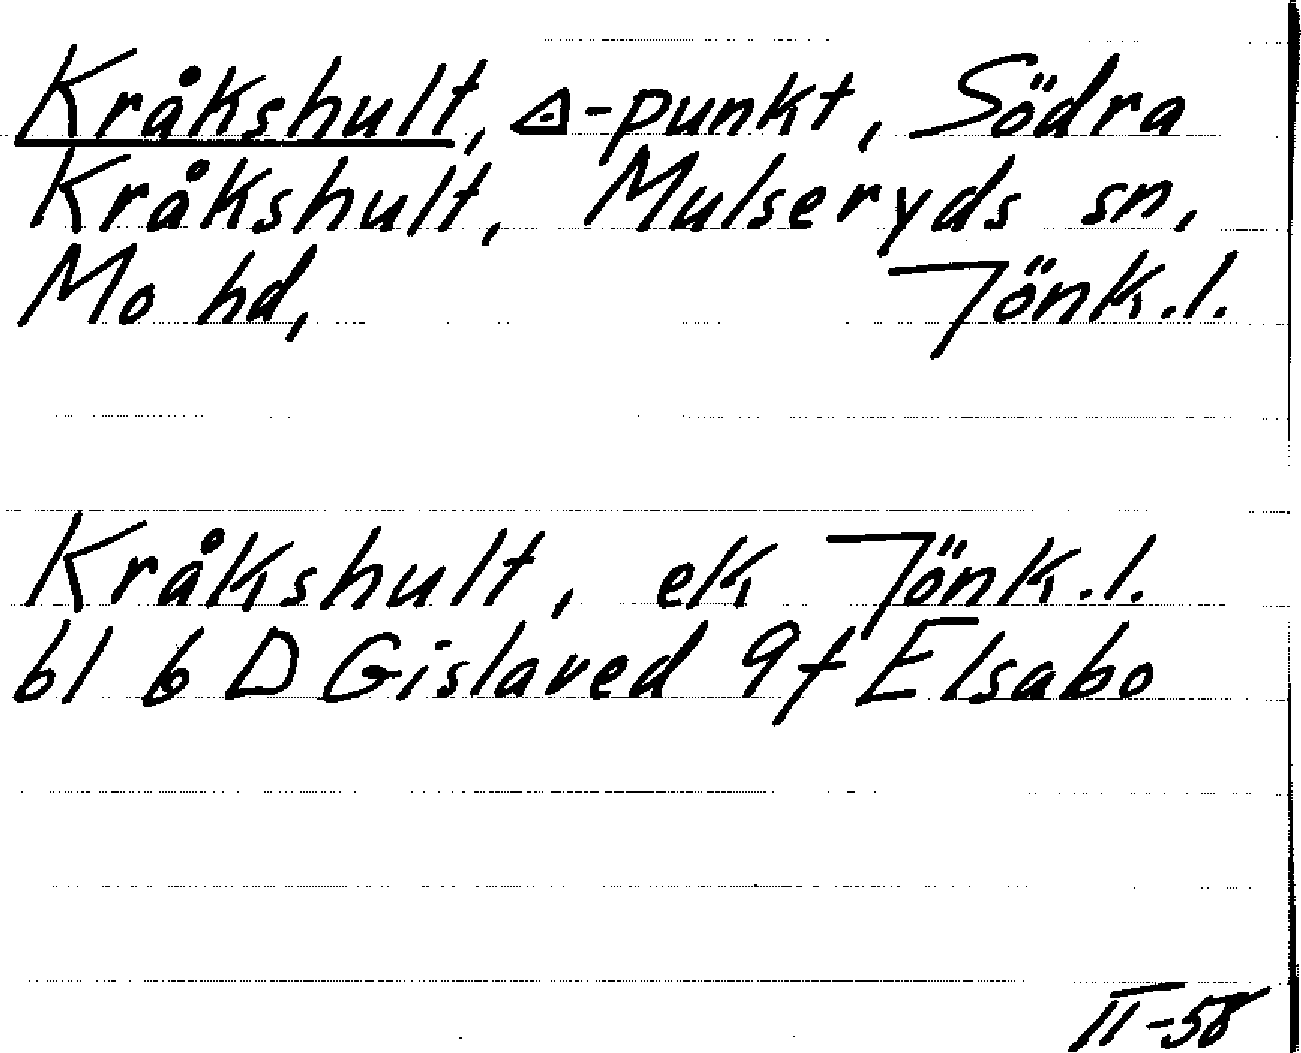 Kråkshult, △-punkt, Södra
Kråkshult, Mulseryds sn,
Mo hd, Jönk.l.
Kråkshult, ek Jönk.l.
bl 6 D Gislaved 9f Elsabo
II-58